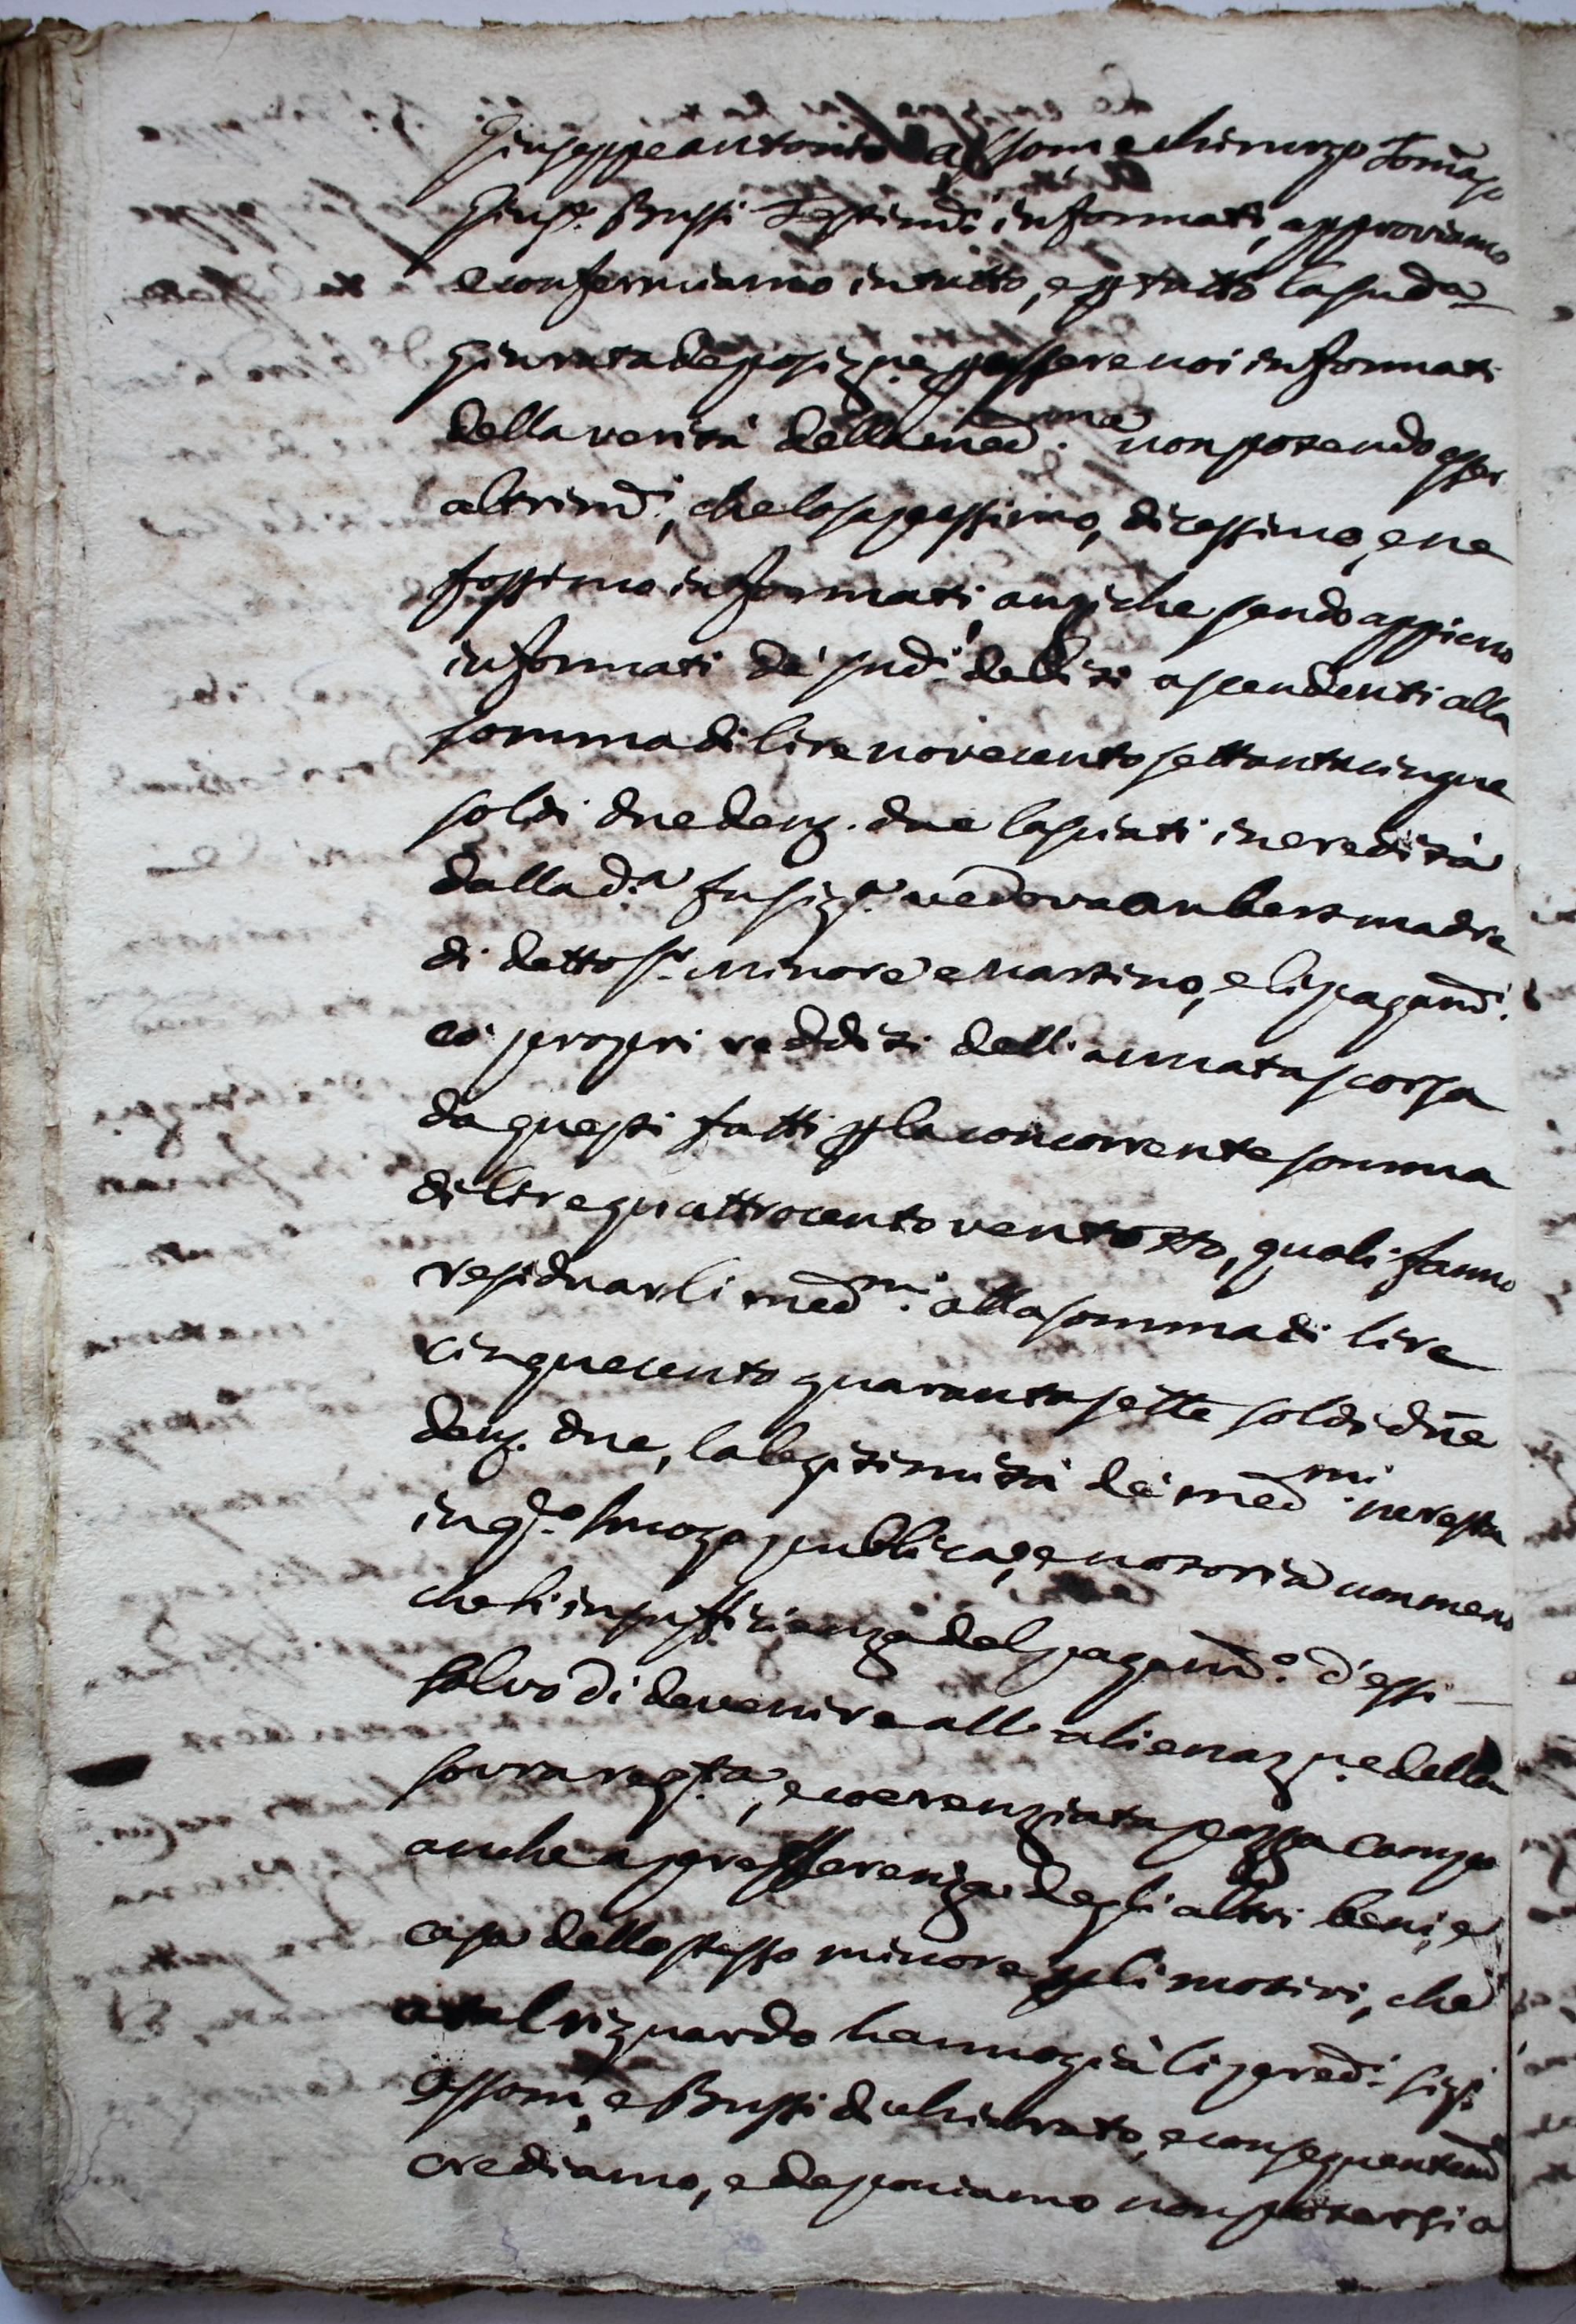 Giuseppe antonio assom e chirurgo Tomaso
Giusp.e Bussi Testim.i informati, approviamo
e confermiamo in tutto, e p tutto la sud.a
giurata deposiz.ne p essere noi informati
della verità della med.ma non potendo esser
altrim.i, che lo sapessimo, dicessimo, e ne
fossimo informati, anziche sendo appieno
informati de' sud.i debiti ascendenti alla
somma di lire novecento settantacinque
soldi due den.i due lasciati in eredità
dalla d.a vedova madre
di detto s.r minore e Martino, e li pagam.i
co' propri redditi dell'annata scorsa
da questi fatti p la concorrente somma
di lire quattrocento ventotto, quali fanno
residuarli med.mi alla somma di lire
cinquecento quarantasette soldi due
den.i due, la legitimità de' med.mi ne resta
in q.to luogo publica, e notoria non meno
che l'insufficienza del pagam.o d'essi
salvo di devenire all'alienaz.ne della
sovra reg.ta, e coerenziata pezza campo
anche a prefferenza degli altri beni, e
casa dello stesso minore p li motivi, che
a tal riguardo hanno già li pred.i sig.i
Assom, e Bussi dichiarato, e conseguentem.e
crediamo, e deponiamo non potersi a